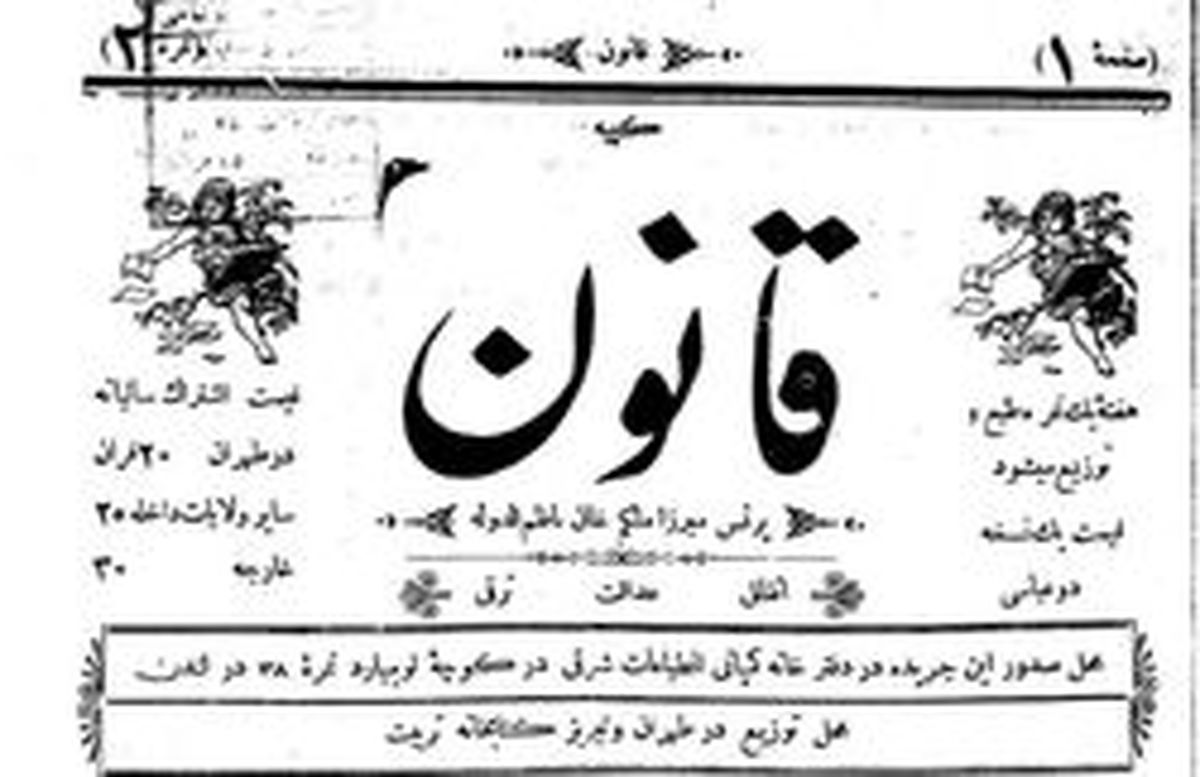 (صفحهٔ ۱)
قانون
(نمره ۲)
کلیه
قانون
هفتهٔ یک نمره طبع و
توزیع میشود
قیمت یک نسخه
دو عباسی
پرنس میرزا ملکم خان ناظم الدوله
اتفاق عدالت ترقی
قیمت اشتراک سالیانه
در طهران ۲۰ قران
سایر ولایات داخله ۲۵
خارجه ۳۰
محل صدور این جریده در دفتر خانه کمپانی انطباعات شرقی در کوچهٔ لومبارد نمرهٔ ۳۸ در لندن
محل توزیع در طهران و تبریز کتابخانه تربیت